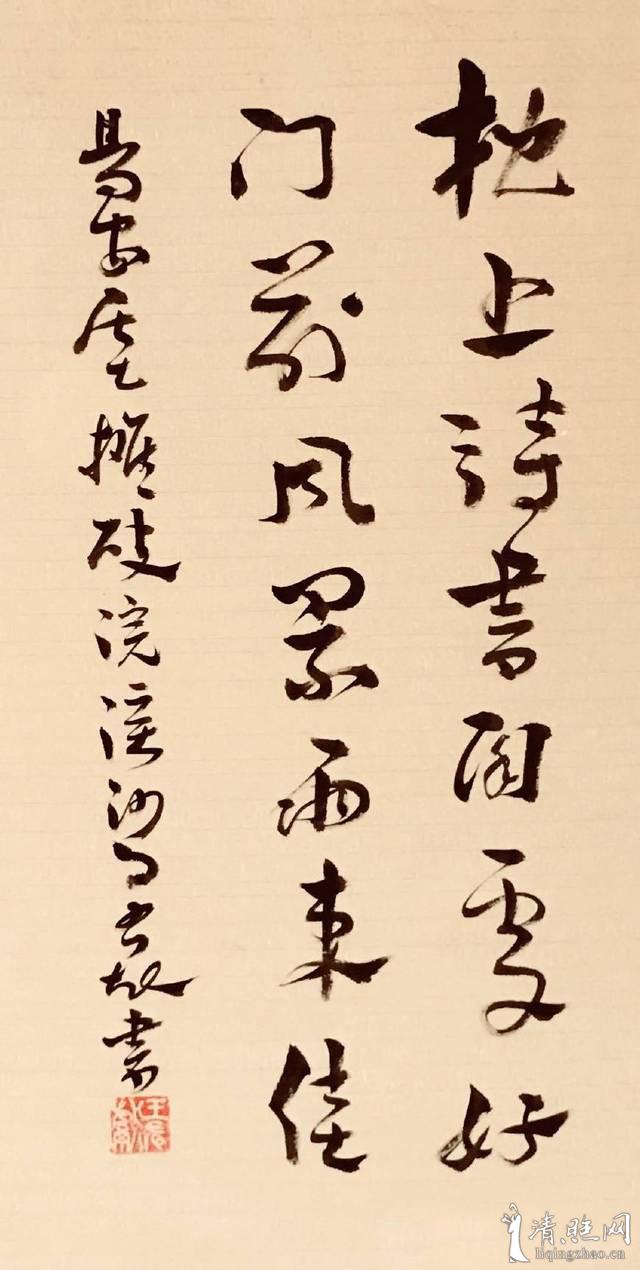 枕上詩書闲處好
门前风景雨来佳
易安居士摊破浣溪沙句 书
清照网
liqingzhao.cn